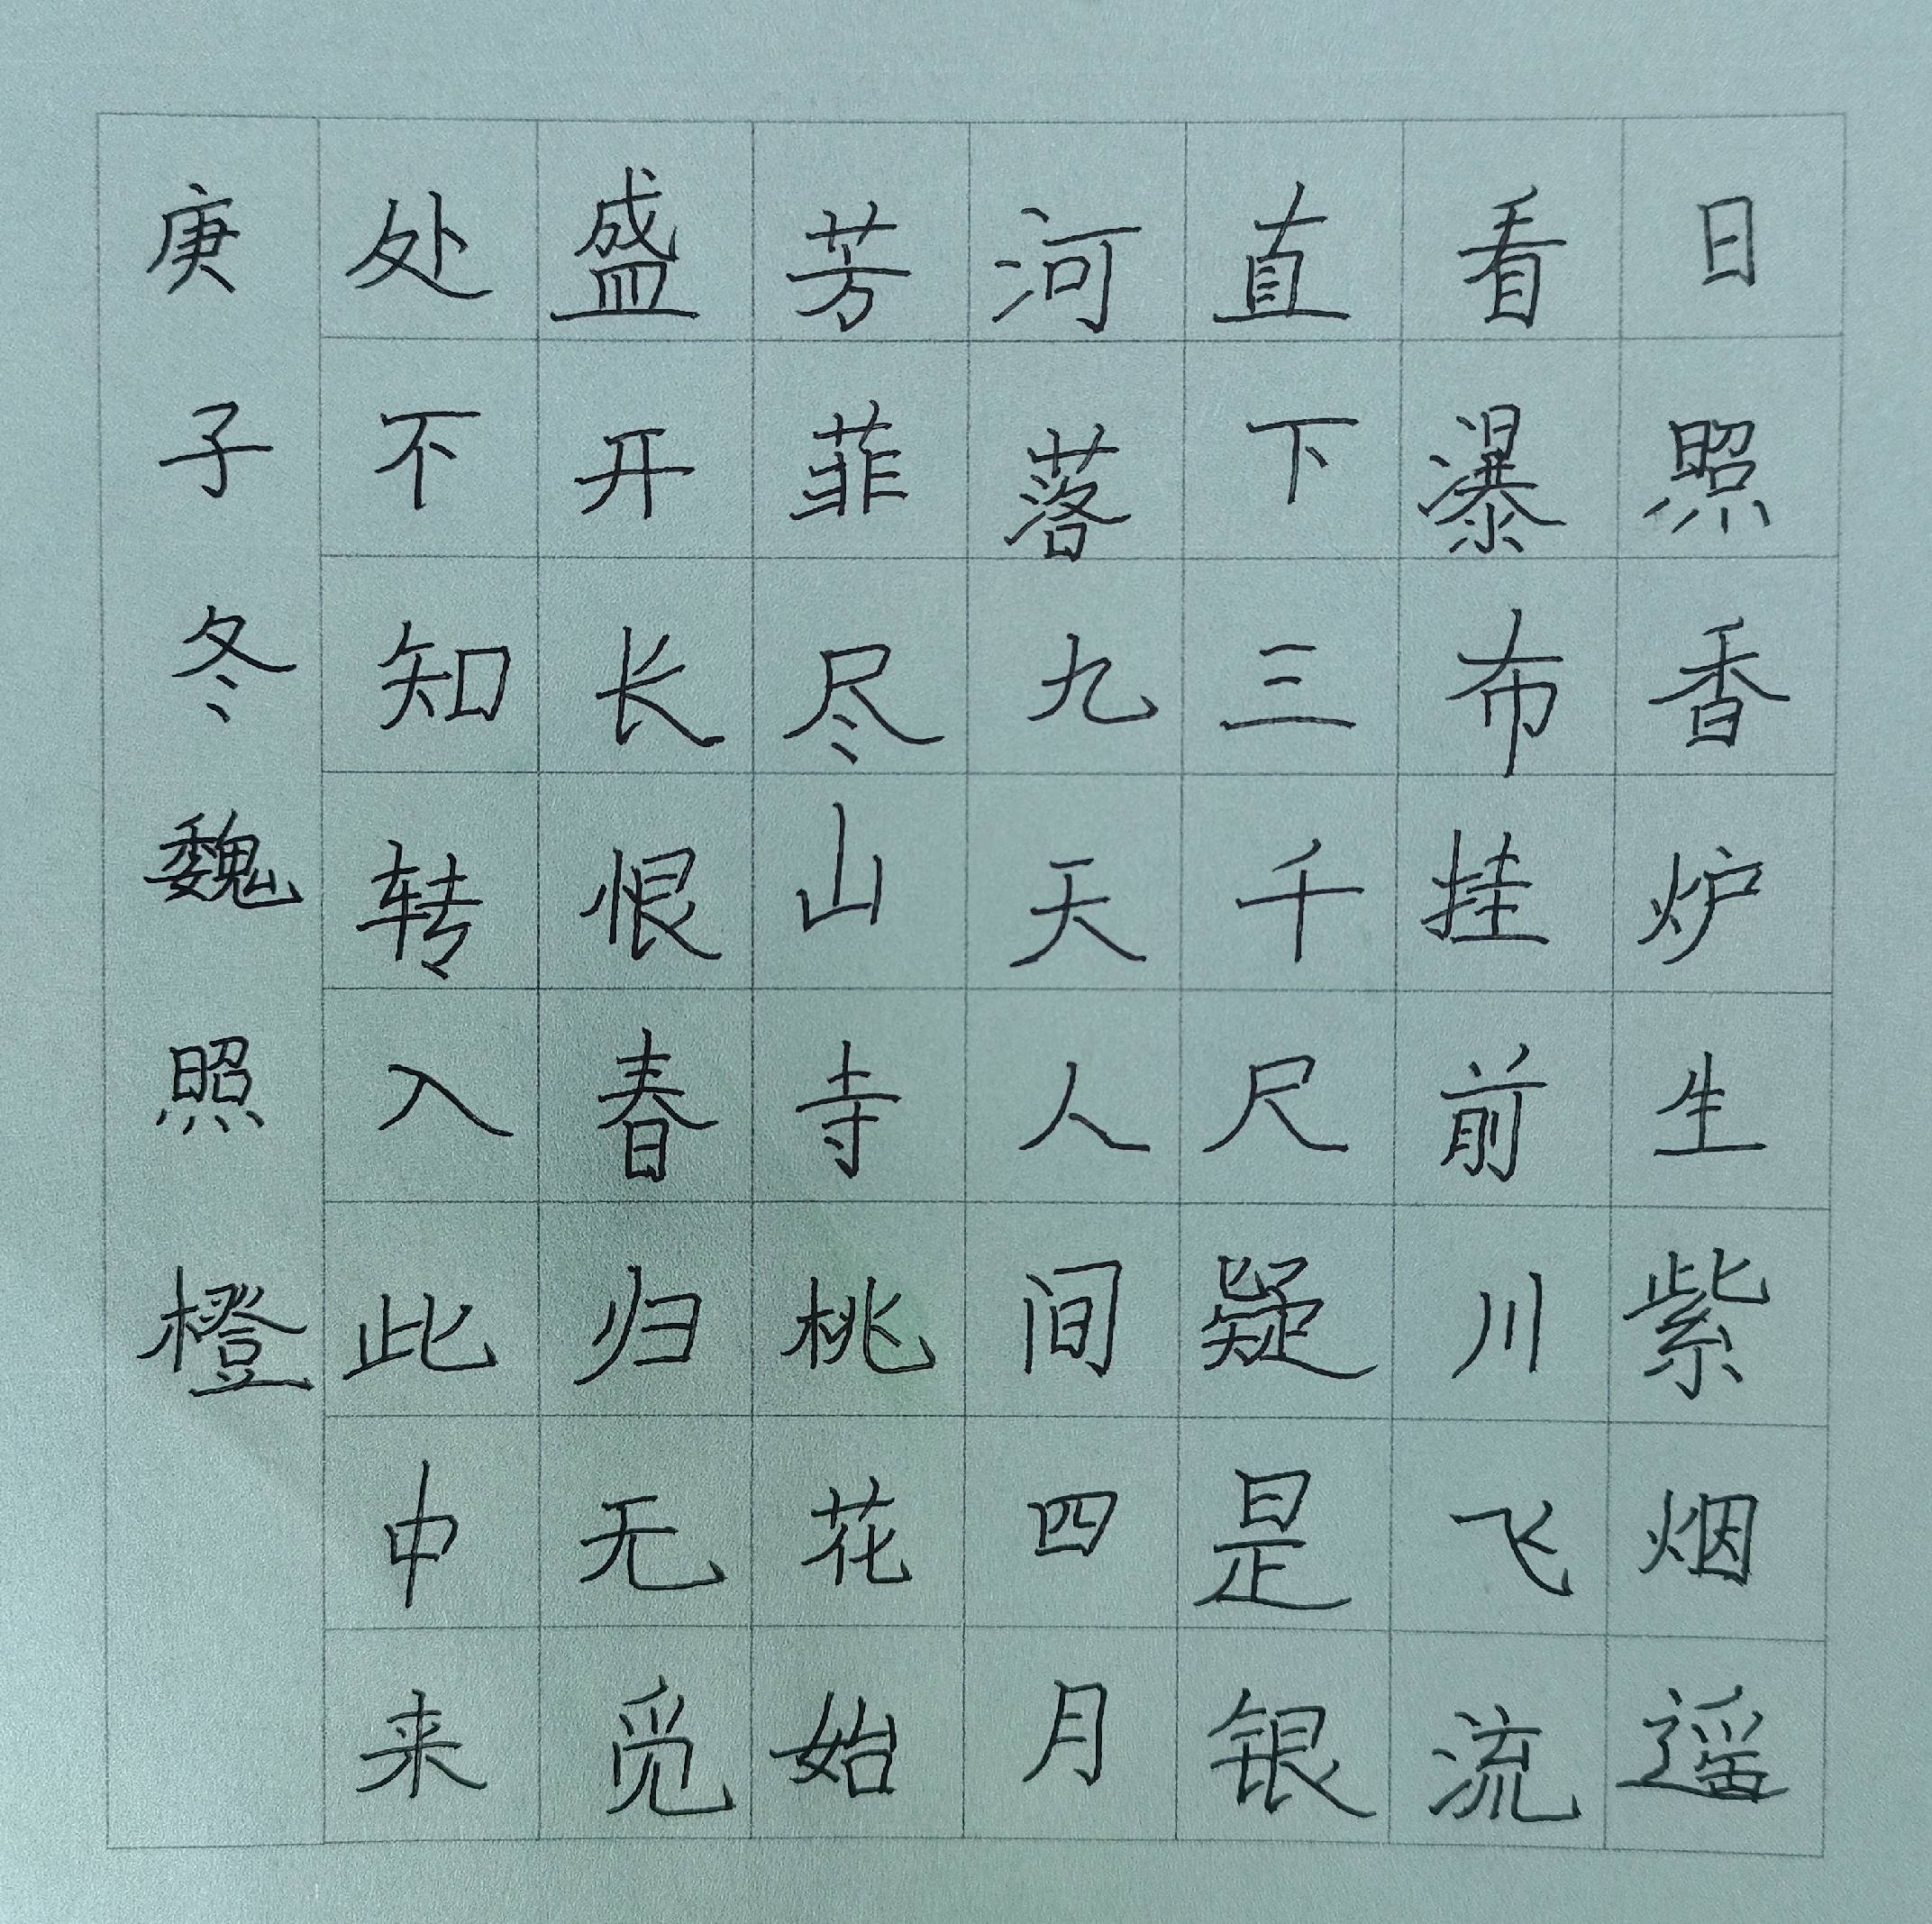 日照香炉生紫烟遥
看瀑布挂前川飞流
直下三千尺疑是银
河落九天人间四月
芳菲尽山寺桃花始
盛开长恨春归无觅
处不知转入此中来
庚子冬魏照橙